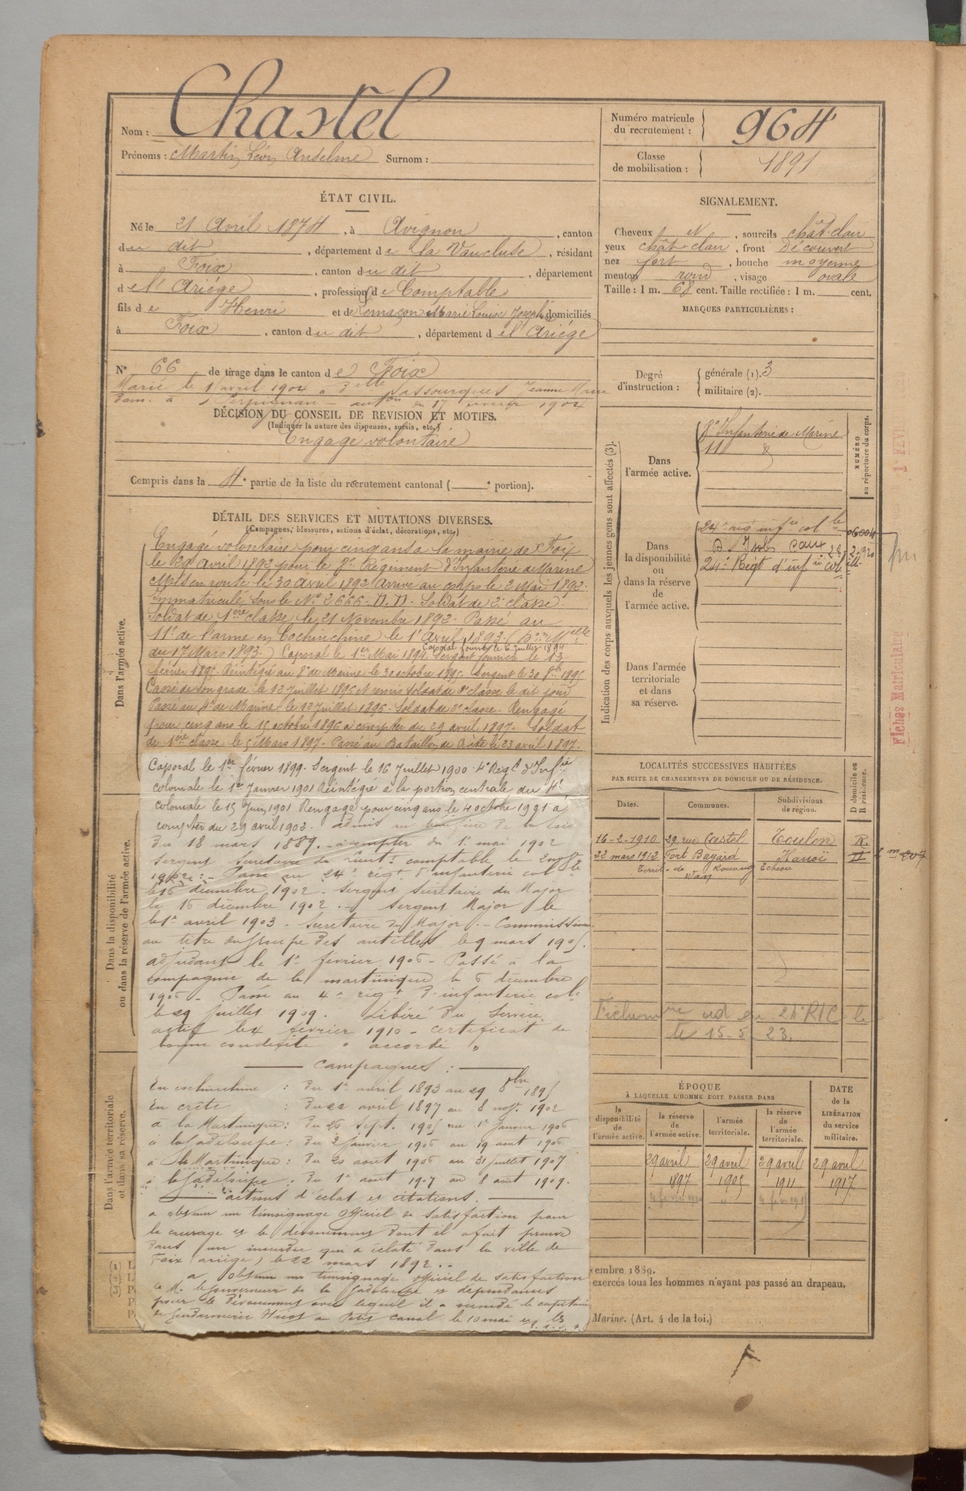 Nom : Chastel
Prénoms : Martin Léon Anselme Surnom :
Numéro matricule du recrutement : 964
Classe de mobilisation : 1891
ÉTAT CIVIL.
Né le 21 Avril 1874, à Avignon, canton
du dit, département de la Vaucluse, résidant
à Foix, canton du dit, département
de l'Ariège, profession de Comptable
fils de Henri et de Marie Louise Joseph domiciliés
à Foix, canton du dit, département de l'Ariège
N° 66 de tirage dans le canton de Foix
Marié le 1 avril 1902 à Delle Lassourques Jeanne Marie
à Perpignan 17 1902
DÉCISION DU CONSEIL DE REVISION ET MOTIFS.
(Indiquer la nature des dispenses, sursis, etc.)
Engagé volontaire
Compris dans la 4e partie de la liste du recrutement cantonal ( e portion).
SIGNALEMENT.
Cheveux et, sourcils chât. clair
yeux chât clair, front Découvert
nez fort, bouche moyenne
menton rond, visage ovale
Taille : 1 m. 68 cent. Taille rectifiée : 1 m. cent.
MARQUES PARTICULIÈRES :
Degré d'instruction : générale (1). 3
militaire (2).
DÉTAIL DES SERVICES ET MUTATIONS DIVERSES.
(Campagnes, blessures, actions d'éclat, décorations, etc.)
Dans l'armée active.
Engagé volontaire pour cinq ans à la mairie de Foix
le 29 Avril 1892 pour le 8e Régiment d'Infanterie de Marine
Mis en route le 30 Avril 1892 Arrivé au corps le 2 Mai 1892
Immatriculé sous le No 2666. Soldat de 2e classe
Soldat de 1ere classe le 21 Novembre 1892. Passé au
11e de l'arme en Cochinchine le 1er Avril 1893
du 17 Mars 1893) Caporal le 1er Mai 1894 Caporal fourrier le 6 juillet 1894 Sergent fourrier le 13
février 1895 Réintégré au 8e de marine le 30 octobre 1895. Sergent le 30 1895
Cassé de son grade le 12 Juillet 1896 Remis Soldat de 2e classe le dit jour
Passé au 4e de Marine le 12 Juillet 1896. Soldat de 2e classe. Rengagé
pour cinq ans le 15 octobre 1896 à compter du 29 avril 1897. Soldat
de 1ere classe le 5 Mars 1897. Passé au Bataillon de Crète le 23 avril 1897.
Caporal le 1er février 1899. Sergent le 16 Juillet 1900 4e Regt d'Infie
coloniale le 1er Janvier 1901 Réintégré à la portion centrale du 4e
coloniale le 15 Juin 1901 Rengagé pour cinq ans le 4 octobre 1901 à
compter du 29 avril 1902. admis au bénéfice de la loi
du 18 mars 1889. à compter du 1er mai 1902
Sergent Secrétaire du comptable le
1902. Passé au 24e régt d'infanterie cole le
16 décembre 1902. Sergent Secrétaire du Major
le 16 décembre 1902. Sergent Major le
1er avril 1903. Secrétaire du Major. Commissionné
au titre du groupe des antilles le 9 mars 1905.
adjudant le 1er février 1906 - Passé à la
compagnie de la martinique le 6 décembre
1906. Passé au 4e régt d'infanterie cole
le 29 juillet 1909. Libéré du Service
actif le 4 février 1910 - certificat de
bonne conduite " accordé "
Campagnes :
En cochinchine : Du 1er avril 1893 au 29 8bre 1895
En crète : Du 22 avril 1897 au 8 1902
à la Martinique : Du 26 Sept. 1905 au 1er janvier 1906
à la Guadeloupe : Du 2 Janvier 1906 au 19 aout 1906
à la Martinique : Du 20 aout 1906 au 31 juillet 1907
à la Guadeloupe : Du 1er aout 1907 au 8 aout 1909.
actions d'éclat et citations.
a obtenu un témoignage officiel de satisfaction pour
le courage et le dévouement dont il a fait preuve
dans un incendie qui a éclaté dans la ville de
Foix (ariège) le 22 mars 1892.
a obtenu un témoignage officiel de satisfaction
de M. le gouverneur de la Guadeloupe et dépendances
pour le Dévouement avec lequel il a secondé le capitaine
de Gendarmerie Huot au Petit Canal le 10 mai
Dans la disponibilité ou dans la réserve de l'armée active.
Dans l'armée territoriale et dans sa réserve.
Indication des corps auxquels les jeunes gens sont affectés (3).
Dans l'armée active.
8e Infanterie de Marine
11
NUMÉRO au répertoire du corps.
Dans la disponibilité ou dans la réserve de l'armée active.
24e reg infie cole
24e Regt d'infie col
Dans l'armée territoriale et dans sa réserve.
LOCALITÉS SUCCESSIVES HABITÉES
PAR SUITE DE CHANGEMENTS DE DOMICILE OU DE RÉSIDENCE.
Dates. Communes. Subdivisions de région. D domicile ou R résidence.
16-2-1910 29 rue Castel Toulon R.
22 mars 1912 Fort Bayard Hanoï
Territ. de Kouang Tchéou
Wan
24e RIC le
le 15-5 23.
ÉPOQUE
À LAQUELLE L'HOMME DOIT PASSER DANS
la disponibilité de l'armée active. la réserve de l'armée active. l'armée territoriale. la réserve de l'armée territoriale. DATE de la LIBÉRATION du service militaire.
29 avril 1897 29 avril 1905 29 avril 1911 29 avril 1917
embre 1889.
exercés tous les hommes n'ayant pas passé au drapeau.
Marine. (Art. 4 de la loi.)
Fiches Matriculaire